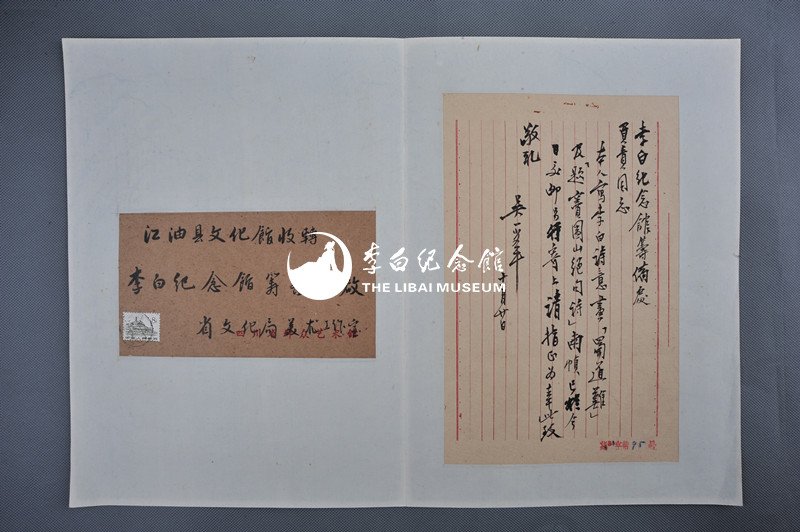 江油县文化馆收转
李白纪念馆筹
启
省文化局美术工作室
李白纪念館
THE LIBAI MUSEUM
李白纪念館筹備处
負責同志
本人寫李白詩意畫「蜀道難」
及「題竇圌山絕句詩」兩幀已於今
日交邮另行寄上請指正为幸此致
敬礼
吴一峰
十月廿日
95